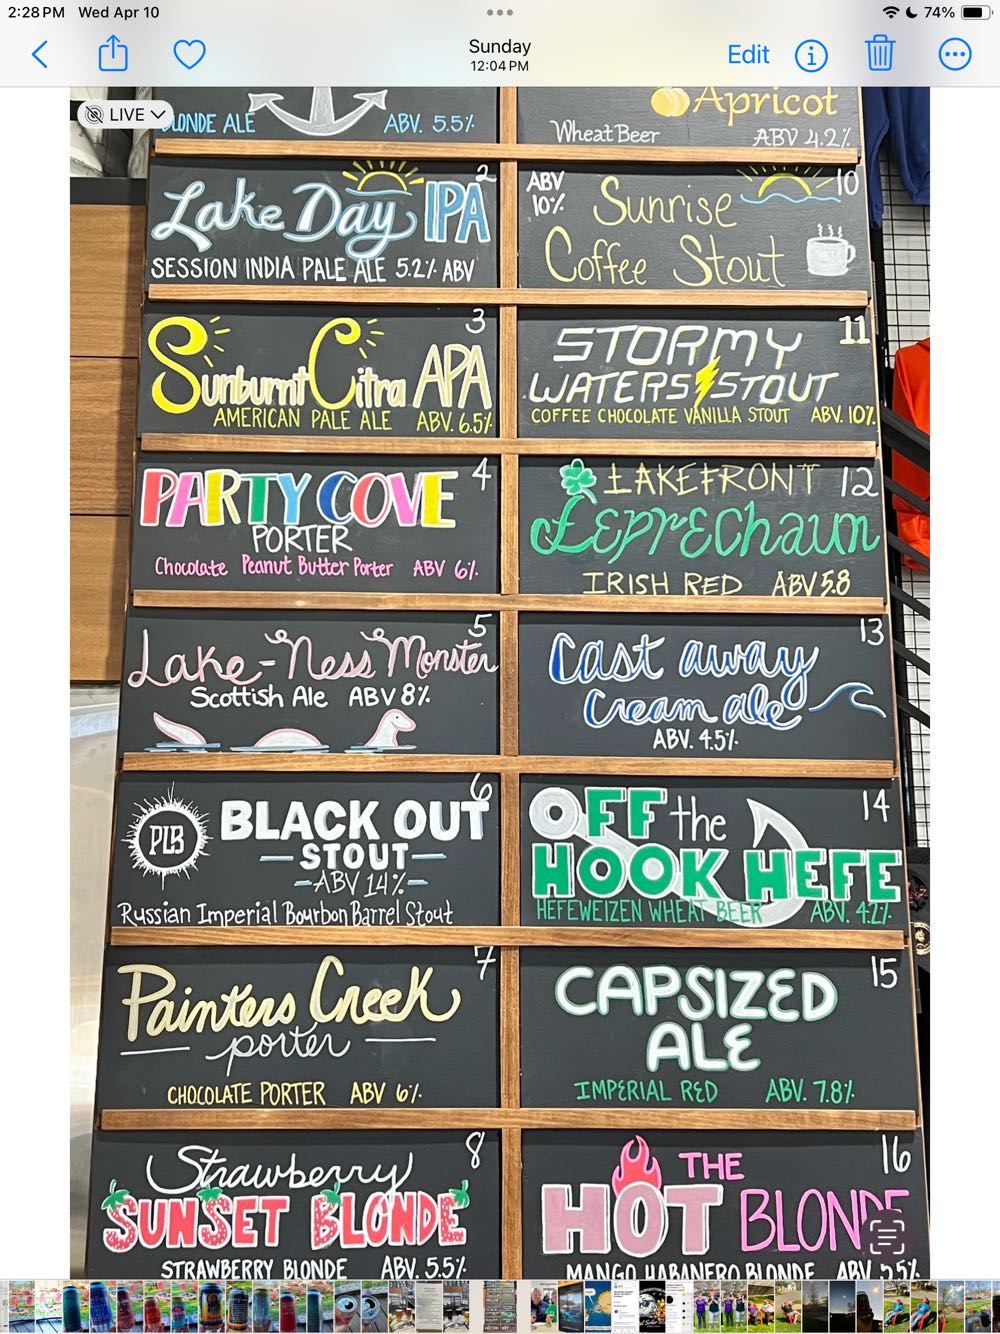 2:28 PM Wed Apr 10
74%
Sunday
12:04 PM
Edit
LIVE
BLONDE ALE ABV. 5.5%
2
Lake Day IPA
SESSION INDIA PALE ALE 5.2% ABV
3
Sunburnt Citra APA
AMERICAN PALE ALE ABV. 6.5%
4
PARTY COVE
PORTER
Chocolate Peanut Butter Porter ABV 6%
5
Lake-Ness Monster
Scottish Ale ABV 8%
6
PLB
BLACK OUT
STOUT
ABV 14%
Russian Imperial Bourbon Barrel Stout
7
Painters Creek
porter
CHOCOLATE PORTER ABV 6%
8
Strawberry
SUNSET BLONDE
STRAWBERRY BLONDE ABV. 5.5%
Apricot
Wheat Beer ABV 4.2%
10
ABV
10%
Sunrise
Coffee Stout
11
STORMY
WATERS STOUT
COFFEE CHOCOLATE VANILLA STOUT ABV. 10%
12
LAKEFRONT
Leprechaun
IRISH RED ABV 5.8
13
Cast away
Cream ale
ABV. 4.5%
14
OFF the
HOOK HEFE
HEFEWEIZEN WHEAT BEER ABV. 4.2%
15
CAPSIZED
ALE
IMPERIAL RED ABV. 7.8%
16
THE
HOT BLONDE
MANGO HABANERO BLONDE ABV 5.5%